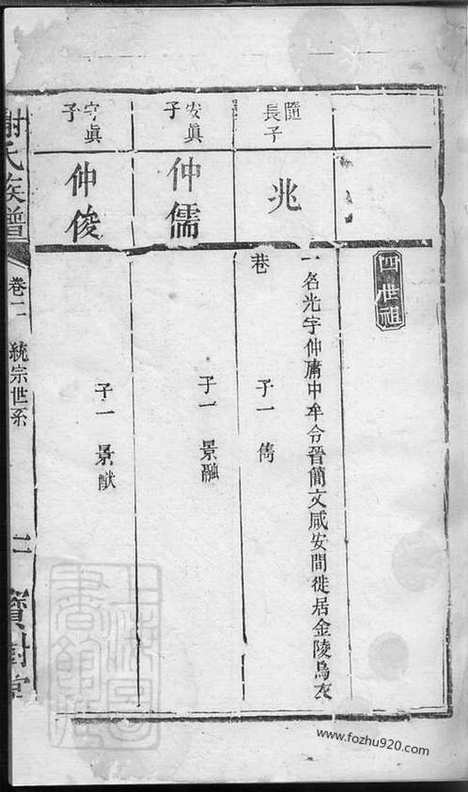 四世祖
隨
長子
兆
一名光字仲庸中牟令晉簡文咸安間徙居金陵烏衣
巷
子一 雋
安眞
子
仲儒
子一 景融
字眞
子
仲俊
子一 景猷
謝氏族譜
卷二 統宗世系
二 寶樹堂
www.fozhu920.com